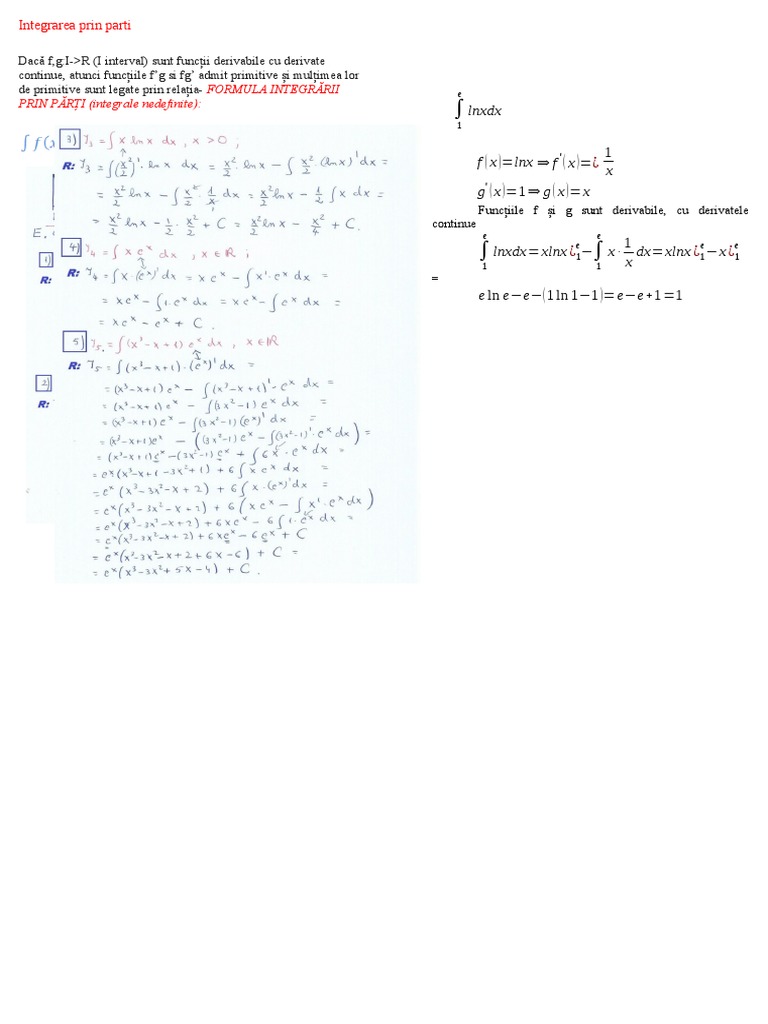 Integrarea prin parti
Dacă f,g:I->R (I interval) sunt funcții derivabile cu derivate
continue, atunci funcțiile f'g si fg' admit primitive și mulțimea lor
de primitive sunt legate prin relația- FORMULA INTEGRĂRII
PRIN PĂRȚI (integrale nedefinite):
∫ f(x
3) I₃ = ∫ x ln x dx , x > 0 ;
R: I₃ = ∫(x²/2)'· ln x dx = x²/2 · ln x − ∫ x²/2 · (ln x)' dx =
= x²/2 ln x − ∫ x²/2 · 1/x dx = x²/2 ln x − 1/2 ∫ x dx =
= x²/2 ln x − 1/2 · x²/2 + C = x²/2 ln x − x²/4 + C.
E.
4) I₄ = ∫ x eˣ dx , x ∈ ℝ ;
1)
R: I₄ = ∫ x · (eˣ)' dx = x eˣ − ∫ x' · eˣ dx =
R:
= x eˣ − ∫ 1 · eˣ dx = x eˣ − ∫ eˣ dx =
= x eˣ − eˣ + C .
5) I₅ = ∫ (x³ − x + 1) eˣ dx , x ∈ ℝ
R: I₅ = ∫ (x³ − x + 1) · (eˣ)' dx =
2)
= (x³ − x + 1) eˣ − ∫ (x³ − x + 1)' · eˣ dx =
R:
= (x³ − x + 1) eˣ − ∫ (3x² − 1) eˣ dx =
= (x³ − x + 1) eˣ − ∫ (3x² − 1) (eˣ)' dx =
= (x³ − x + 1) eˣ − ((3x² − 1) eˣ − ∫ (3x² − 1)' · eˣ dx) =
= (x³ − x + 1) eˣ − (3x² − 1) eˣ + ∫ 6x · eˣ dx =
= eˣ (x³ − x + 1 − 3x² + 1) + 6 ∫ x eˣ dx =
= eˣ (x³ − 3x² − x + 2) + 6 ∫ x · (eˣ)' dx =
= eˣ (x³ − 3x² − x + 2) + 6 (x eˣ − ∫ x' · eˣ dx)
= eˣ (x³ − 3x² − x + 2) + 6x eˣ − 6 ∫ 1 · eˣ dx =
= eˣ (x³ − 3x² − x + 2) + 6x eˣ − 6 eˣ + C
= eˣ (x³ − 3x² − x + 2 + 6x − 6) + C =
= eˣ (x³ − 3x² + 5x − 4) + C .
∫₁ᵉ lnxdx
f(x)=lnx⇒f'(x)=¿ 1/x
g'(x)=1⇒g(x)=x
Funcțiile f și g sunt derivabile, cu derivatele
continue
∫₁ᵉ lnxdx=xlnx¿₁ᵉ−∫₁ᵉ x·1/x dx=xlnx¿₁ᵉ−x¿₁ᵉ
=
e ln e−e−(1 ln 1−1)=e−e+1=1